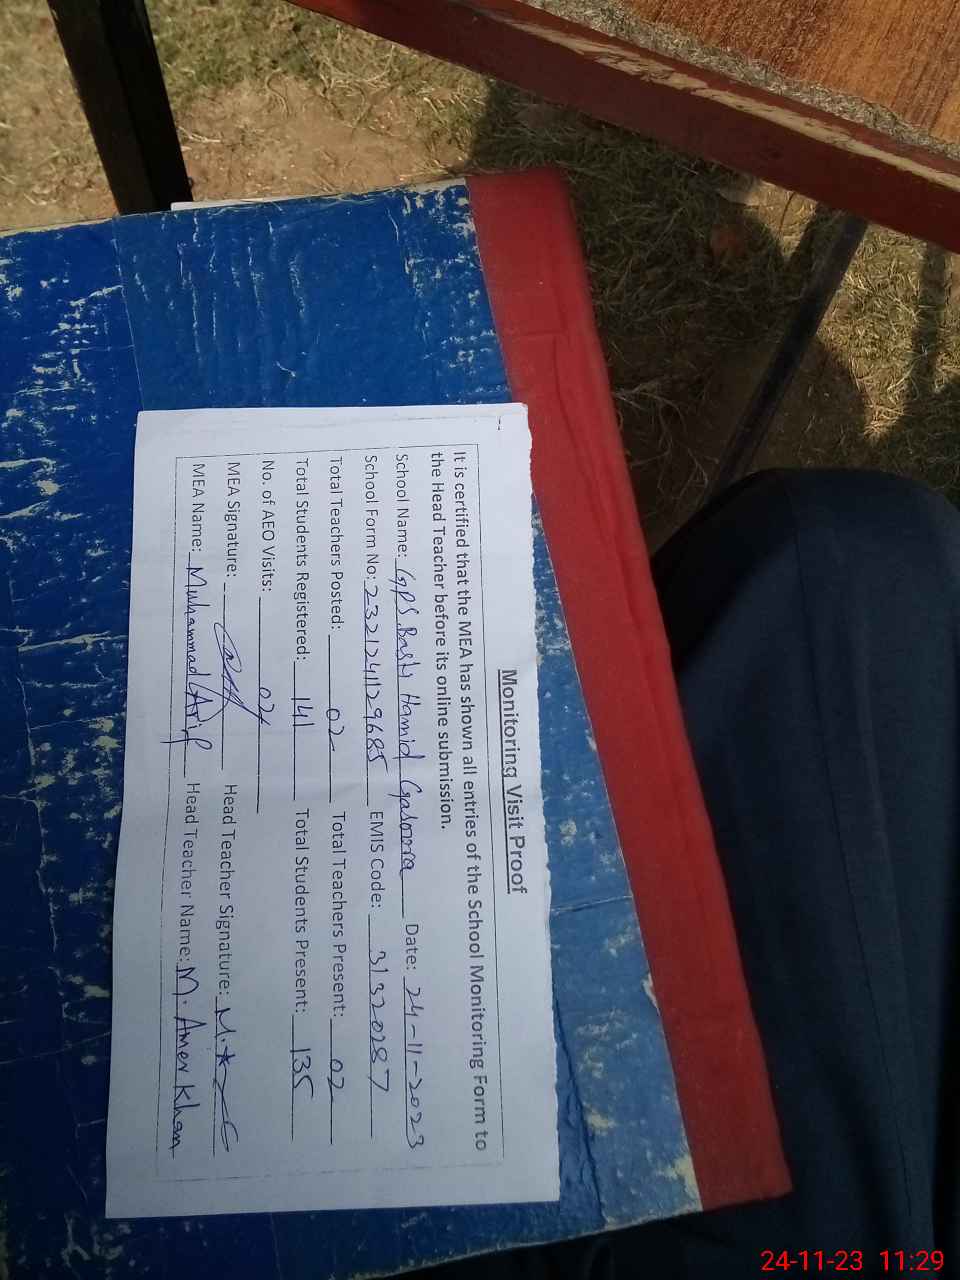 Monitoring Visit Proof
It is certified that the MEA has shown all entries of the School Monitoring Form to
the Head Teacher before its online submission.
School Name: GPS. Basti Hamid Gasoora Date: 24-11-2023
School Form No: 2321241129685 EMIS Code: 31320287
Total Teachers Posted: 02 Total Teachers Present: 02
Total Students Registered: 141 Total Students Present: 135
No. of AEO Visits: 04
MEA Signature: Head Teacher Signature:
MEA Name: Muhammad Arif Head Teacher Name: M. Amer Khan
24-11-23 11:29